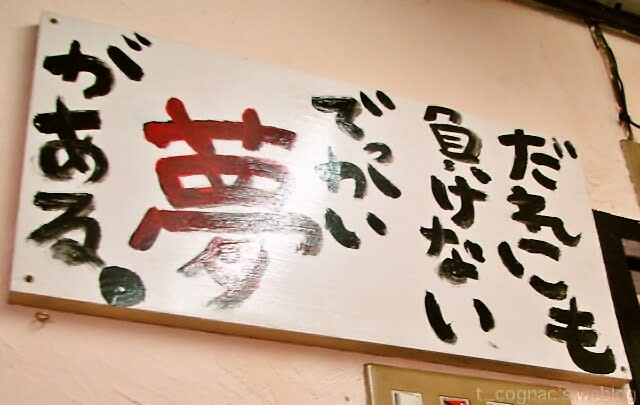 だれにも
負けない
でっかい
夢
がある。
t_cognac's weblog